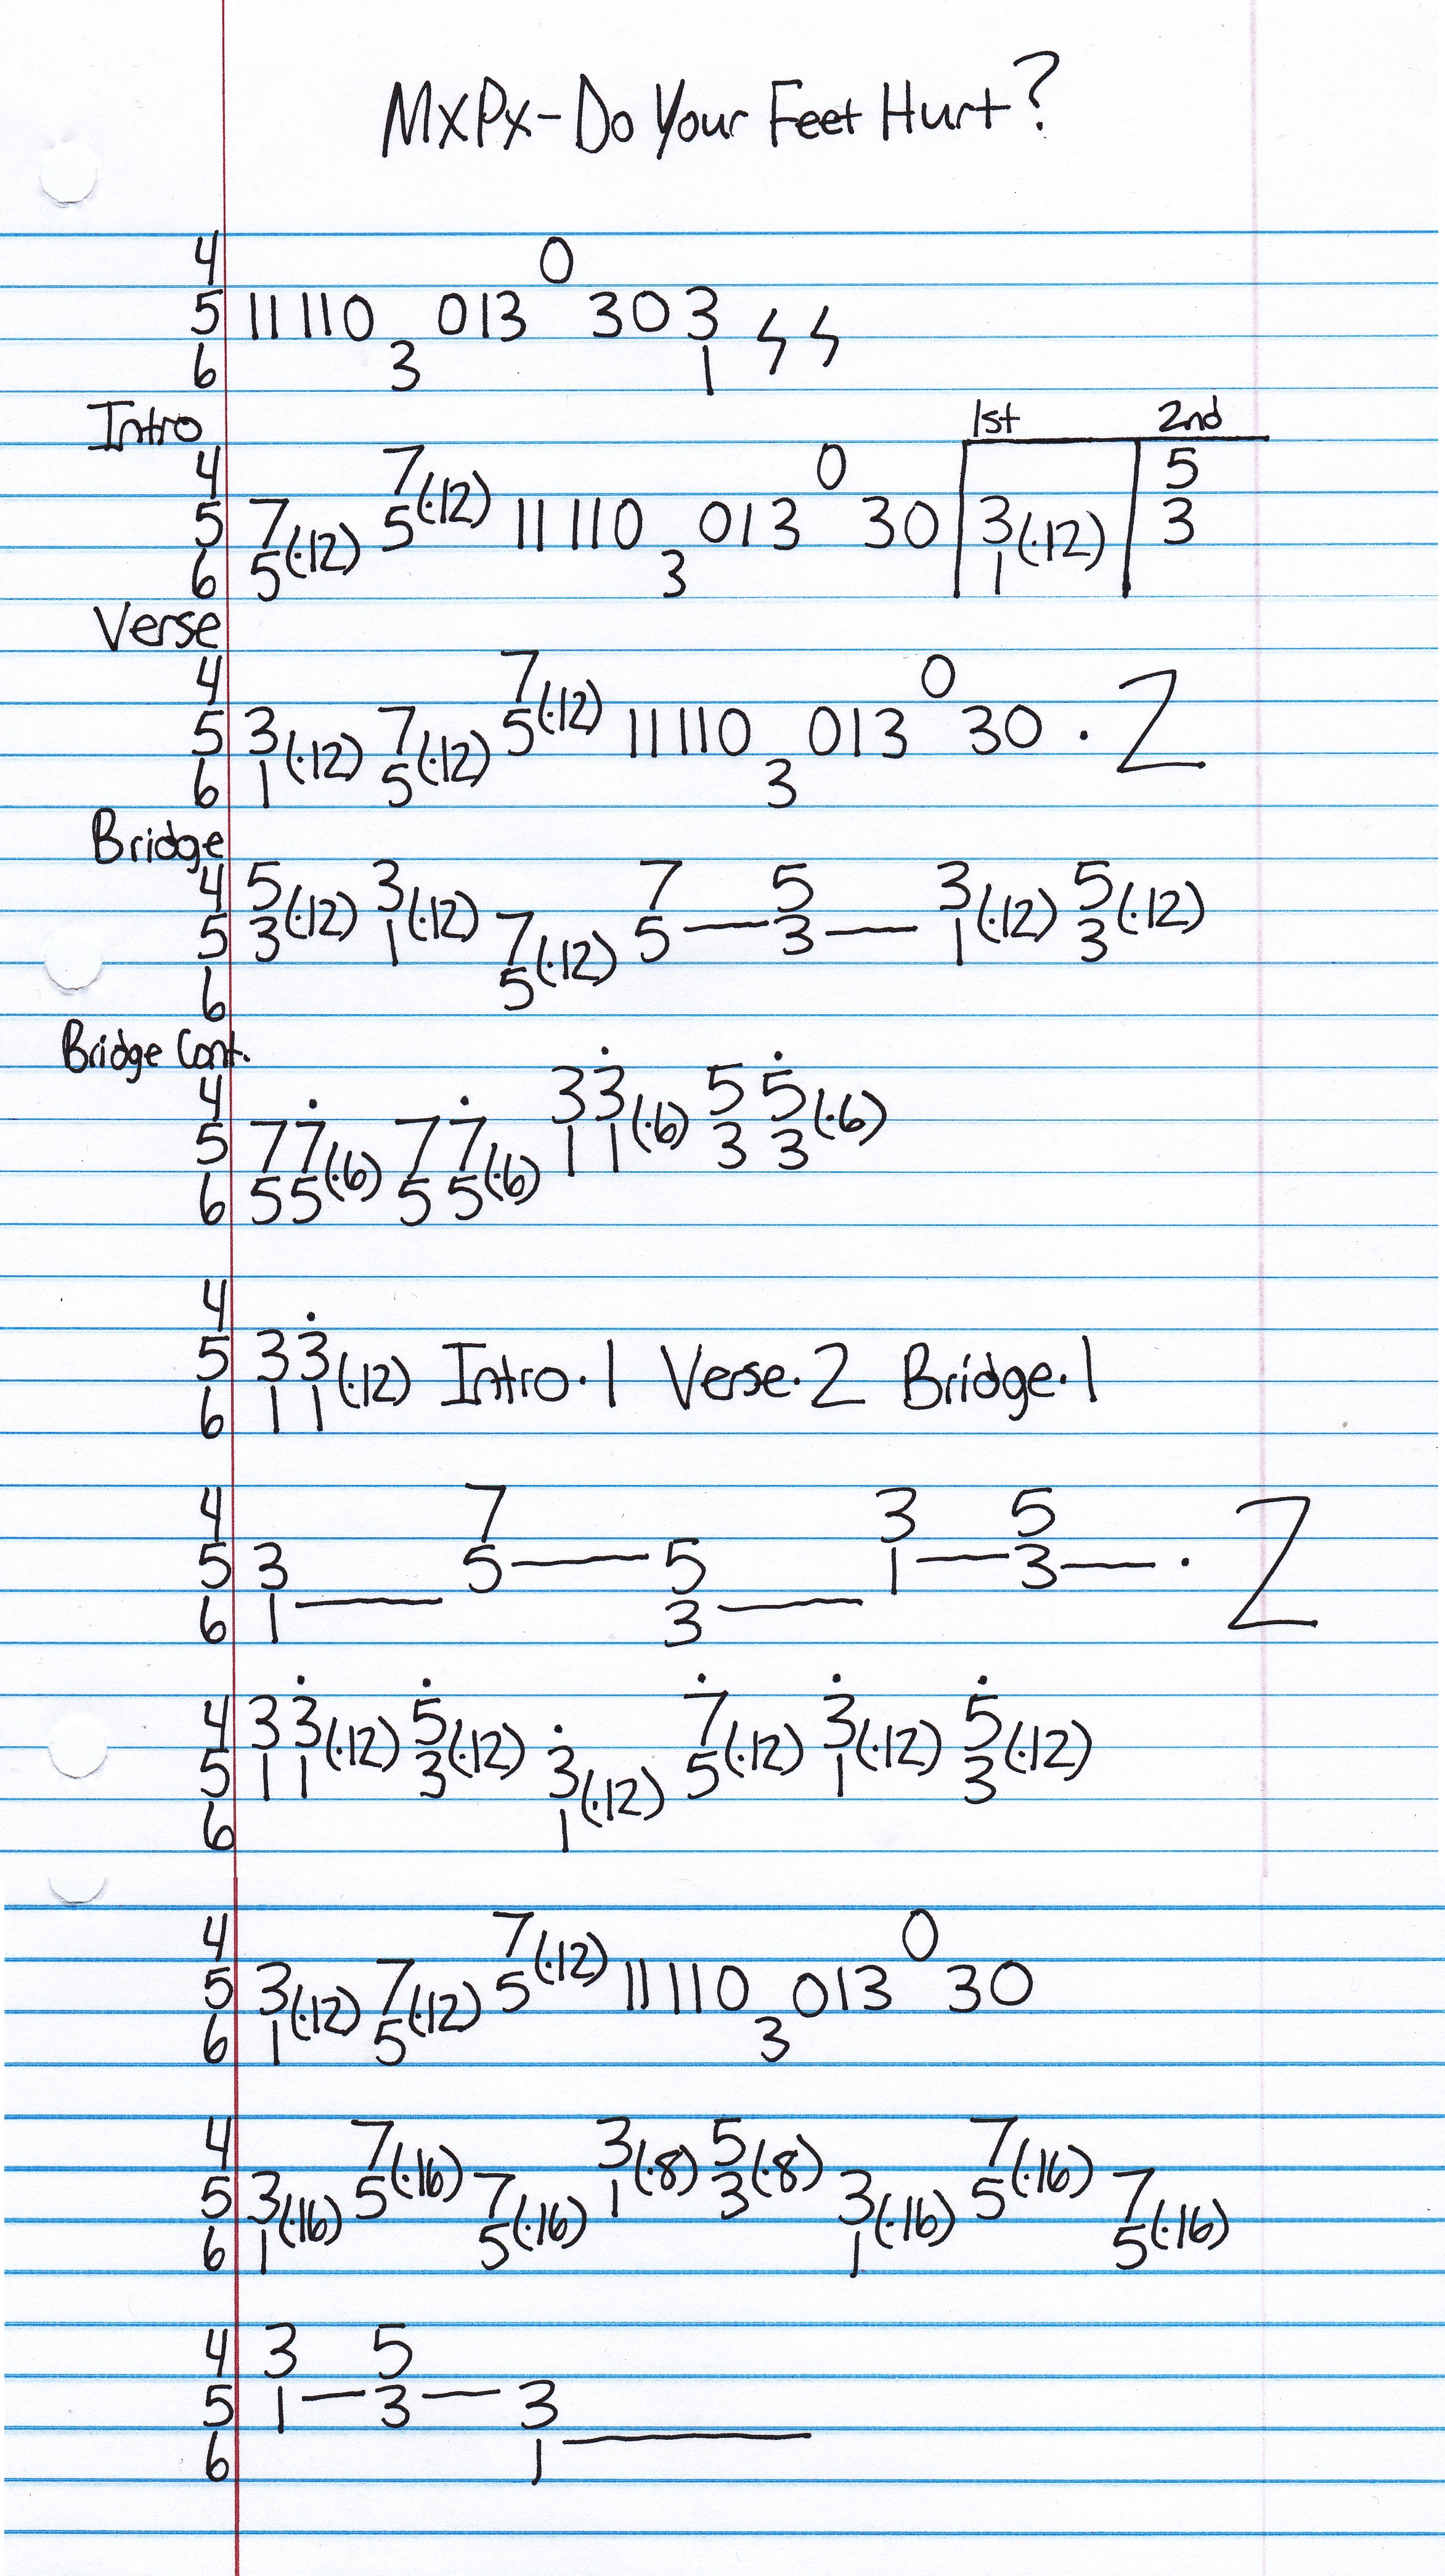 MXPX-Do Your Feet Hurt?
4 0
5 11 110 013 303 ϟ ϟ
6 3 1
Intro 1st 2nd
4 7(·12) 0 5
5 7(·12) 5 11 110 013 30 3(·12) 3
6 5 3 1
Verse
4 7(·12) 0
5 3(·12) 7(·12) 5 11 110 013 30 · 2
6 1 5 3
Bridge
4 5(·12) 3(·12) 7 5 3(·12) 5(·12)
5 3 1 7(·12) 5— 3— 1 3
6 5
Bridge Cont.
4 3 3(·6) 5 5(·6)
5 7 7(·6) 7 7(·6) 1 1 3 3
6 5 5 5 5
4
5 3 3(·12) Intro·1 Verse·2 Bridge·1
6 1 1
4 7 3 5
5 3 5— 5 1— 3— · 2
6 1— 3—
4 3 3(·12) 5(·12) 7(·12) 3(·12) 5(·12)
5 1 1 3 3(·12) 5 1 3
6 1
4 7(·12) 0
5 3(·12) 7(·12) 5 11 110 013 30
6 1 5 3
4 7(·16) 3(·8) 5(·8) 7(·16)
5 3(·16) 5 7(·16) 1 3 3(·16) 5 7(·16)
6 1 5 1 5
4 3 5
5 1— 3— 3
6 1—